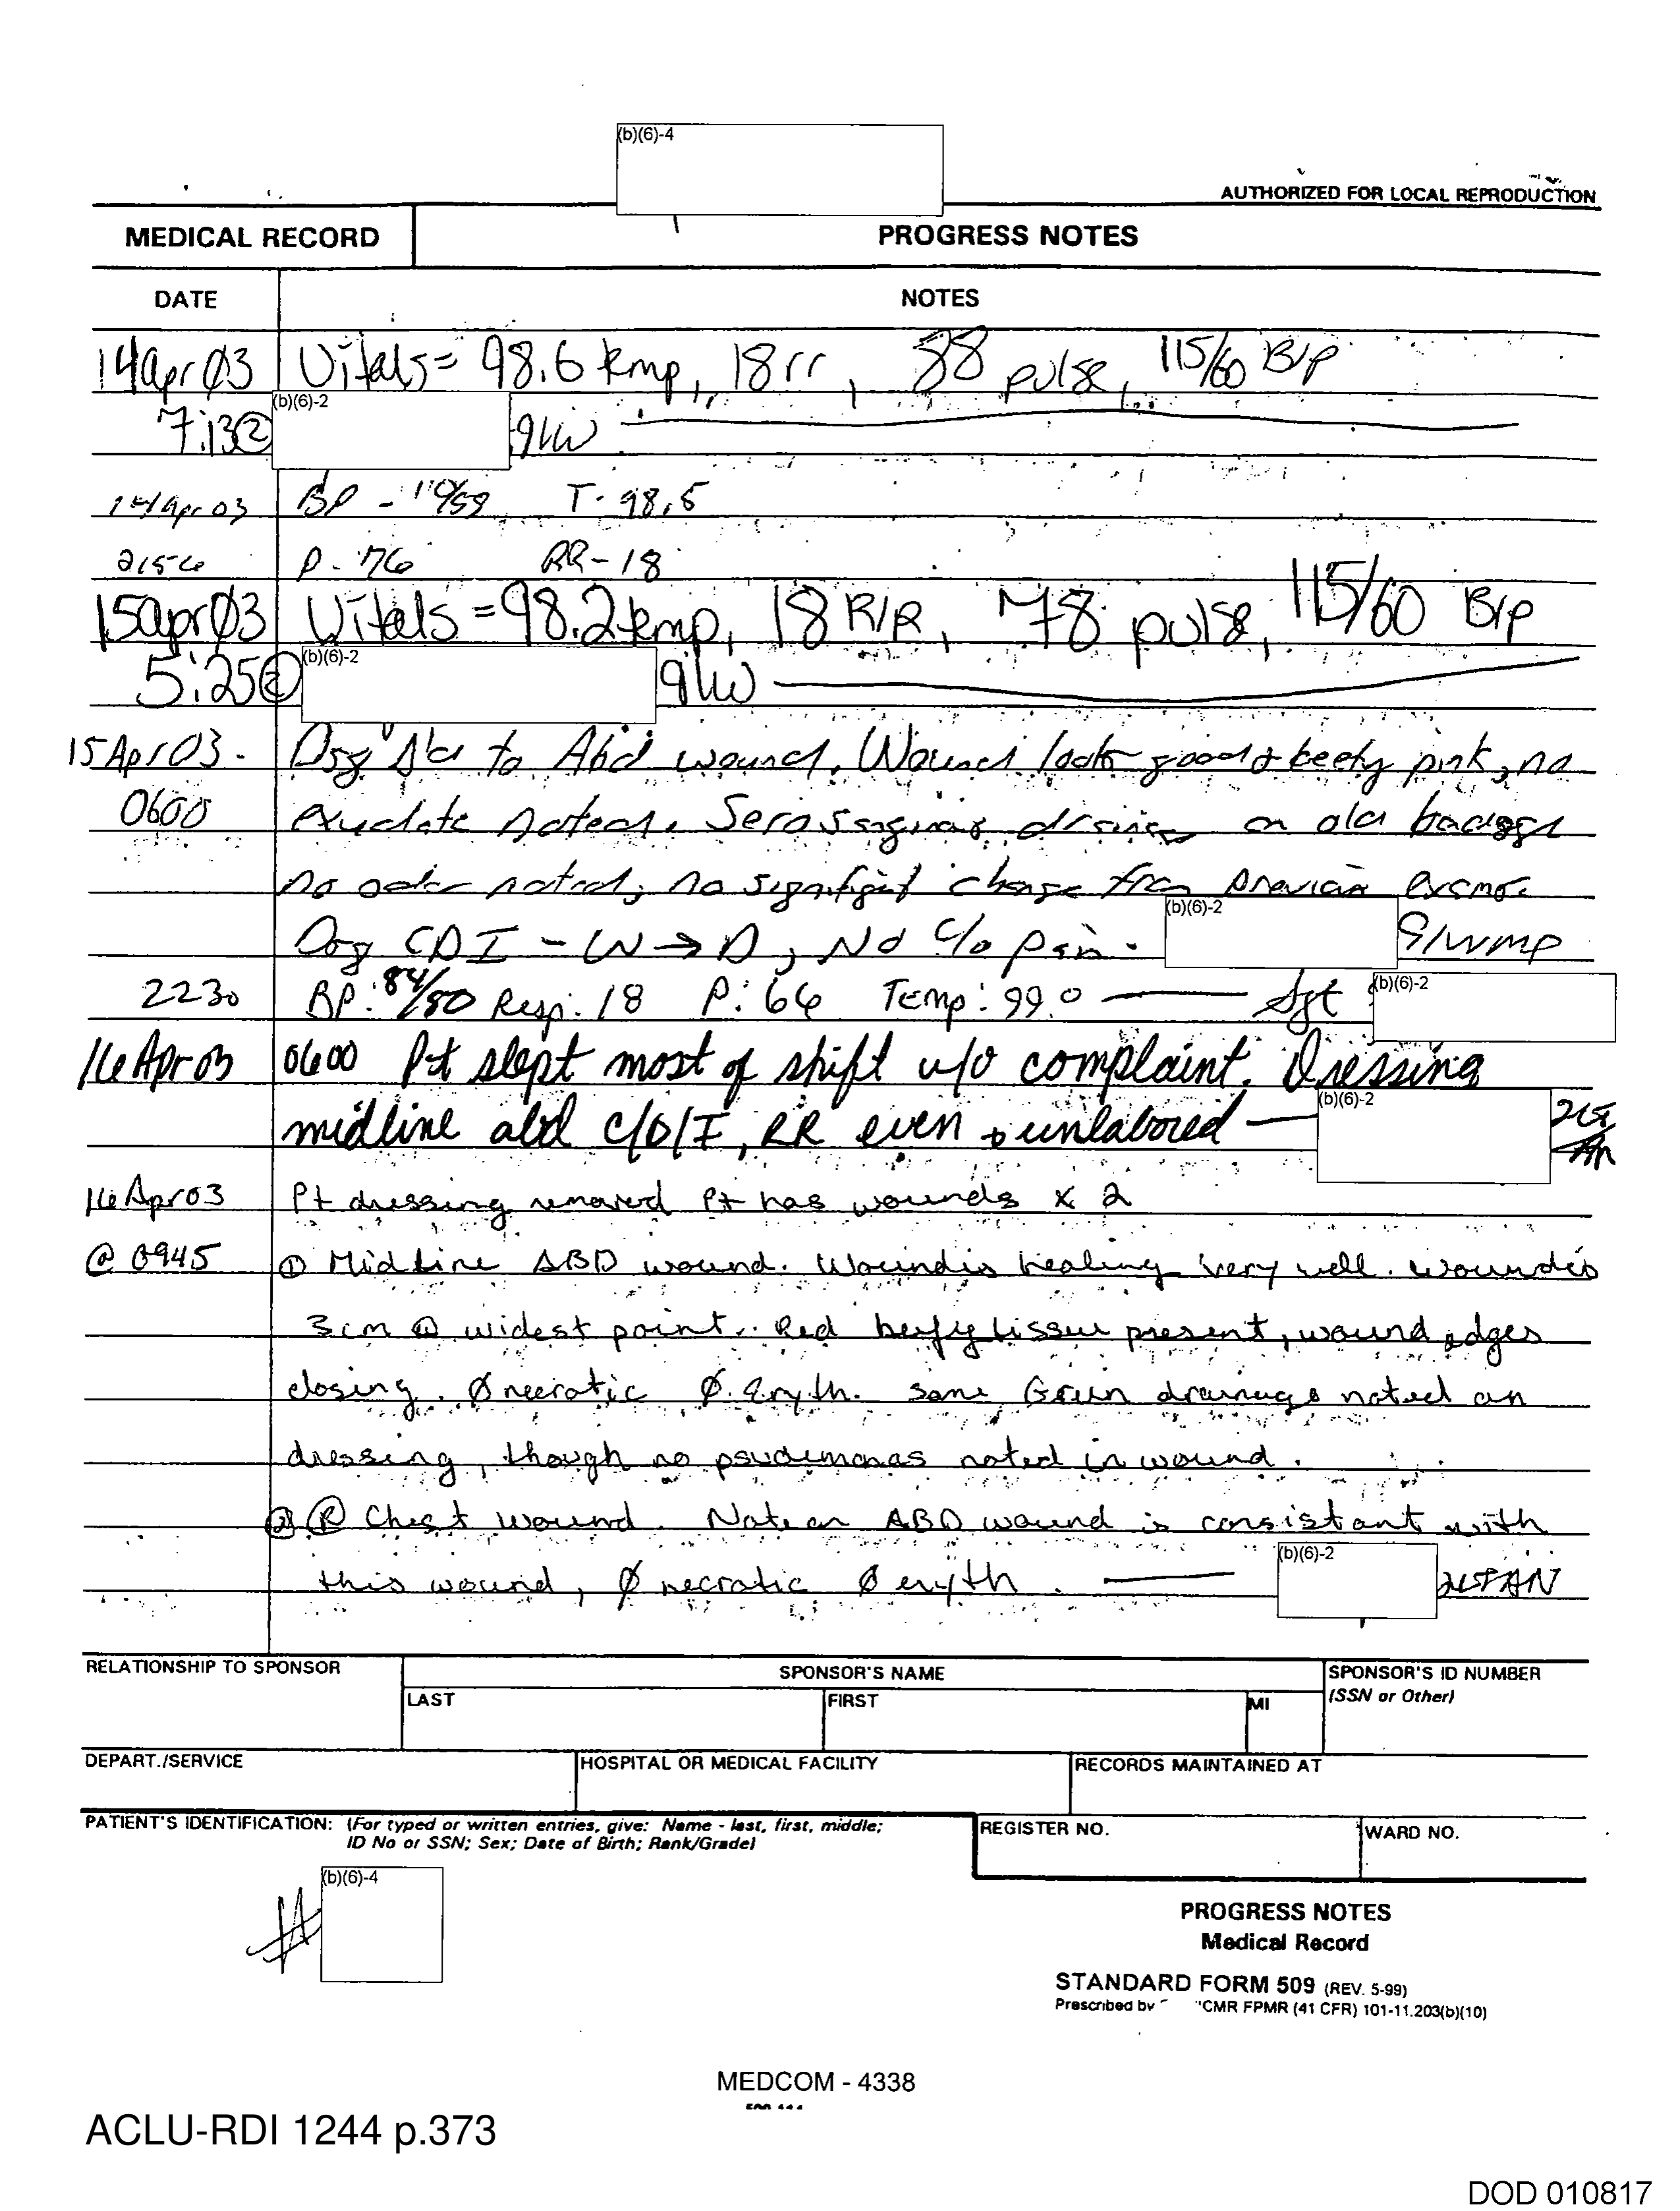 (b)(6)-4
AUTHORIZED FOR LOCAL REPRODUCTION
MEDICAL RECORD PROGRESS NOTES
DATE NOTES
14apr03 Vitals= 98.6 temp, 18 rr, 88 pulse, 115/60 B/P
7:13 (b)(6)-2 91W
14 Apr 03 BP - 110/59 T- 98.5
P- 76 RR-18
15apr03 Vitals = 98.2 temp, 18 R/R, 78 pulse, 115/60 B/P
5:25 (b)(6)-2 91W
15 Apr 03 - Dsg Δ'd to Abd wound. Wound look good & beefy pink, no
0600 exudate noted. on old
no odor noted, no change from exam.
Dsg CDI - W → D, No c/o pain. (b)(6)-2 91WMP
2230 BP: 84/50 Resp: 18 P: 66 Temp: 99.0 Sgt (b)(6)-2
16 Apr 03 0600 Pt slept most of shift w/o complaint. Dressing
midline abd C/D/I, RR even + unlabored (b)(6)-2
16 Apr 03 Pt dressing removed Pt has wounds x 2
@ 0945 ① Midline ABD wound. Wound is healing very well. wound is
3cm @ widest point. Red beefy tissue present, wound edges
closing. Ø necrotic Ø eryth. some Green drainage noted on
dressing, though no psudimonas noted in wound.
② Ⓡ Chest wound. Note on ABD wound is consistant with
this wound, Ø necrotic Ø eryth. (b)(6)-2 2LT AN
RELATIONSHIP TO SPONSOR SPONSOR'S NAME SPONSOR'S ID NUMBER
LAST FIRST MI (SSN or Other)
DEPART./SERVICE HOSPITAL OR MEDICAL FACILITY RECORDS MAINTAINED AT
PATIENT'S IDENTIFICATION: (For typed or written entries, give: Name - last, first, middle; REGISTER NO. WARD NO.
ID No or SSN; Sex; Date of Birth; Rank/Grade)
# (b)(6)-4
PROGRESS NOTES
Medical Record
STANDARD FORM 509 (REV. 5-99)
Prescribed by CMR FPMR (41 CFR) 101-11.203(b)(10)
MEDCOM - 4338
ACLU-RDI 1244 p.373
DOD 010817